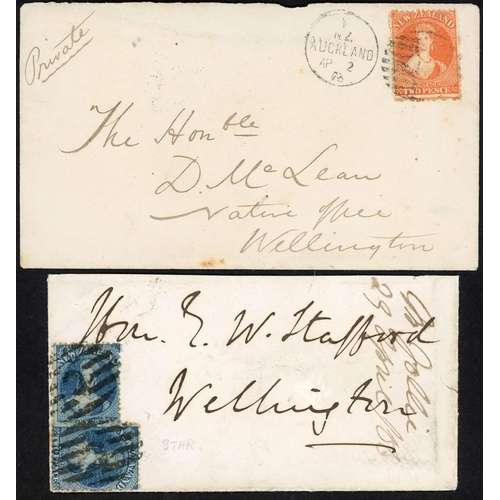 Private
N.Z.
AUCKLAND
AP 2
NEW ZEALAND
TWO PENCE
The Honble
D. McLean
Native Office
Wellington
Hon. E. W. Stafford
Wellington
STAR
29 April